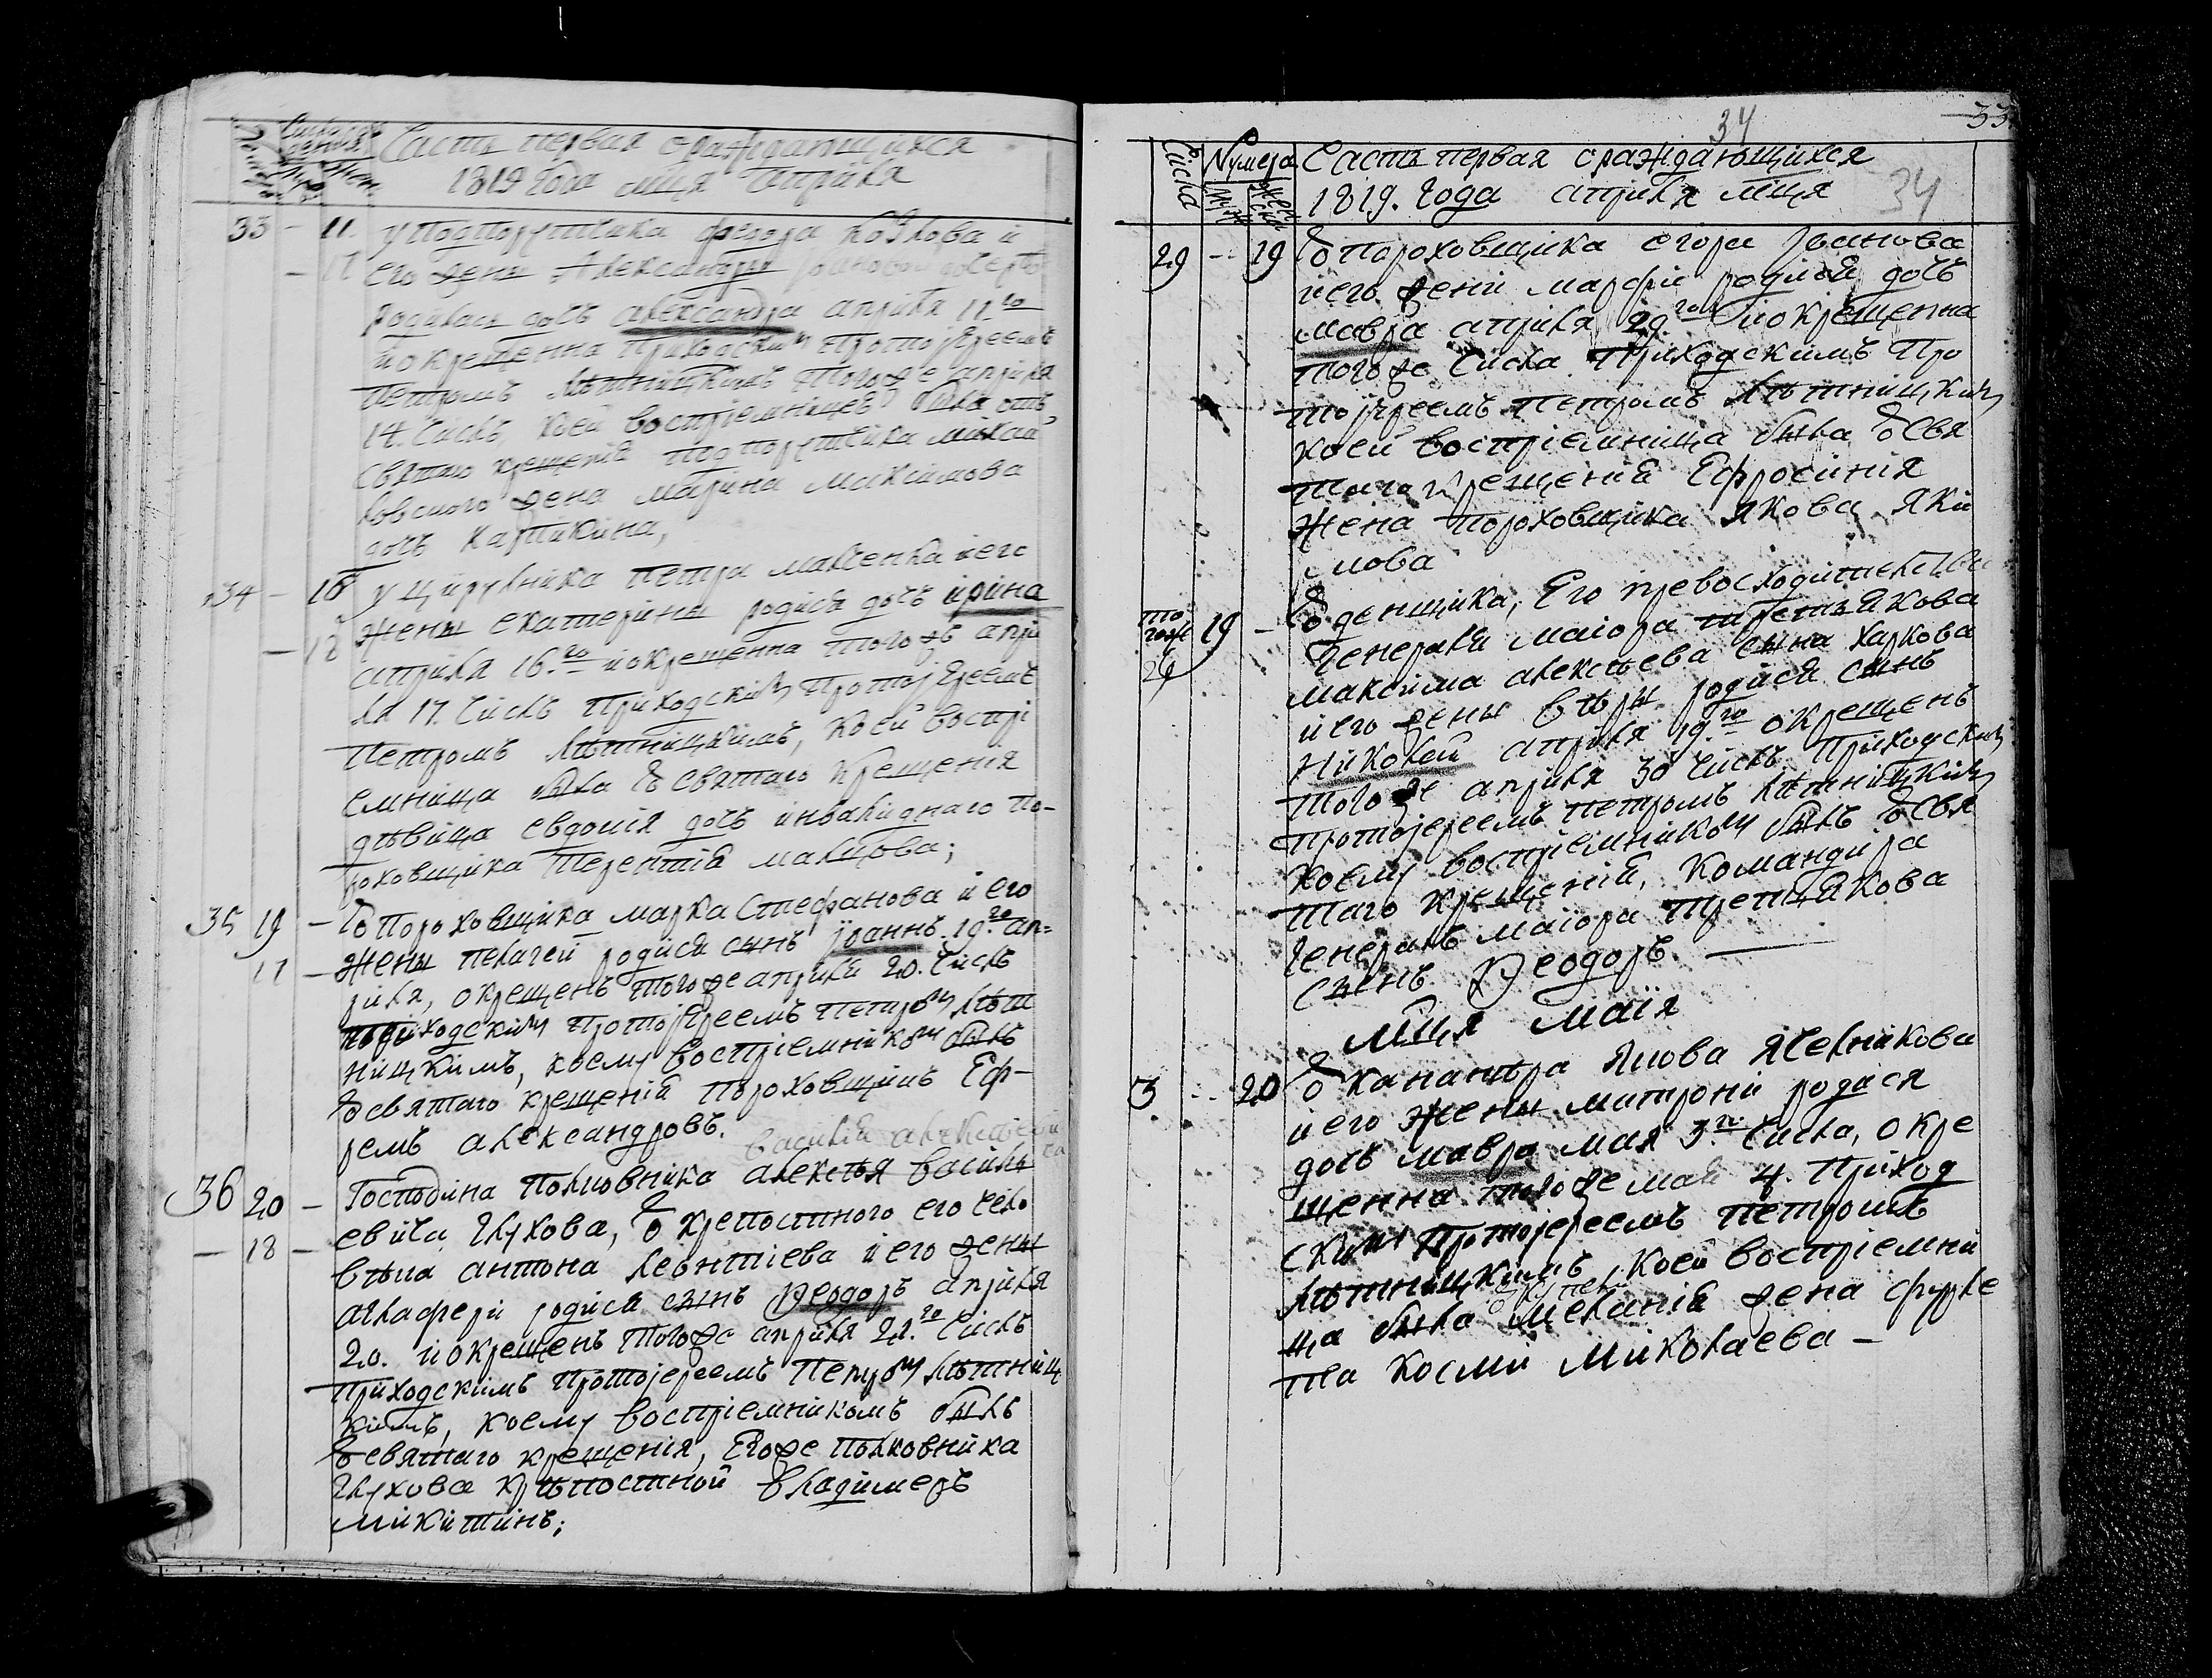 Часть первая о раждающихся
1819 Года мця Априля
33 - 11.
У подпорутчика Федора Козлова и
- 17
его жены Александры
родилась дочь Александра априля 11го
и окрещенна Приходскимъ Протоіереемъ
Петромъ Лѣтницкимъ того же априля
14. числъ, коей воспріемницею была отъ
святаго крещенія подпорутчика Михай
ловского жена Марина Максимова
дочь Карпикина,
34 - 16
У Цирулника Петра Макленка и его
жены екатерины родися дочь ирина
- 18
априля 16.го и окрещенна того жъ апри
ля 17. числъ Приходскимъ Протоіереемъ
Петромъ Лѣтницкимъ, коей воспрі
емница была Ѿ святаго крещенія
дѣвица евдокія дочь инвалиднаго по-
роховщика Терентія малцова;
35 19 -
Ѿ пороховщика марка Стефанова и его
17 -
жены пелагеи родися сынъ іоаннъ 19.го ап=
риля, окрещенъ того же априля 20. числъ
приходскимъ протоіереемъ Петромъ Лѣт
ницкимъ, коему воспріемникомъ былъ
Ѿ святаго крещенія пороховщикъ Еф-
ремъ александровъ.
василія алексѣеви
36 20 -
Господина полковника алексѣя василь
- 18 -
евича Глухова, Ѿ крепостного его чело
вѣка антона леонтіева и его жены
агафери родися сынъ Ѳеодоръ априля
20. и окрещенъ того же априля 21.го числъ
приходскимъ протоіереемъ Петромъ Лѣтниц
кимъ, коему воспріемникомъ былъ
Ѿ святаго крещенія, Его же полковника
Глухова крѣпостной владимеръ
микитинъ;
34
33
Числа
Нумера
Муж
Женска
Часть первая о раждающихся
1819. года априля мця
34
29 - 19
Ѿ пороховщика егора Іванова
и его жени марфи родися дочь
мавра априля 29.го и окрещенна
того же числа приходскимъ Про
тоіереемъ Петромъ Лѣтницкимъ
коей воспріемница была Ѿ Свя
таго крещенія Ефросинія
жена пороховщика Якова Яки
мова
то
гожъ 19 -
29
Ѿ денщика, Его превосходителства
Генерала маіора третьякова
максима алексѣева сына харкова
и его жены вѣры родися сынъ
Николай априля 19.го окрещенъ
того же априля 30 числъ приходскимъ
протоіереемъ петромъ лѣтницкимъ
коему воспріемникомъ былъ Ѿ Свя
таго крещенія, Командира
Генералъ маіора третьякова
сынъ Ѳеодоръ.
мця маія
3 - 20
Ѿ кананѣра Якова
и его жены матрони родася
дочь мавра мая 3го числа, окре
щенна того же мая 4. приход
скимъ Протоіереемъ петромъ
Лѣтницкимъ, коей воспріемни
ца была меланія жена фурле
та косми миколаева -